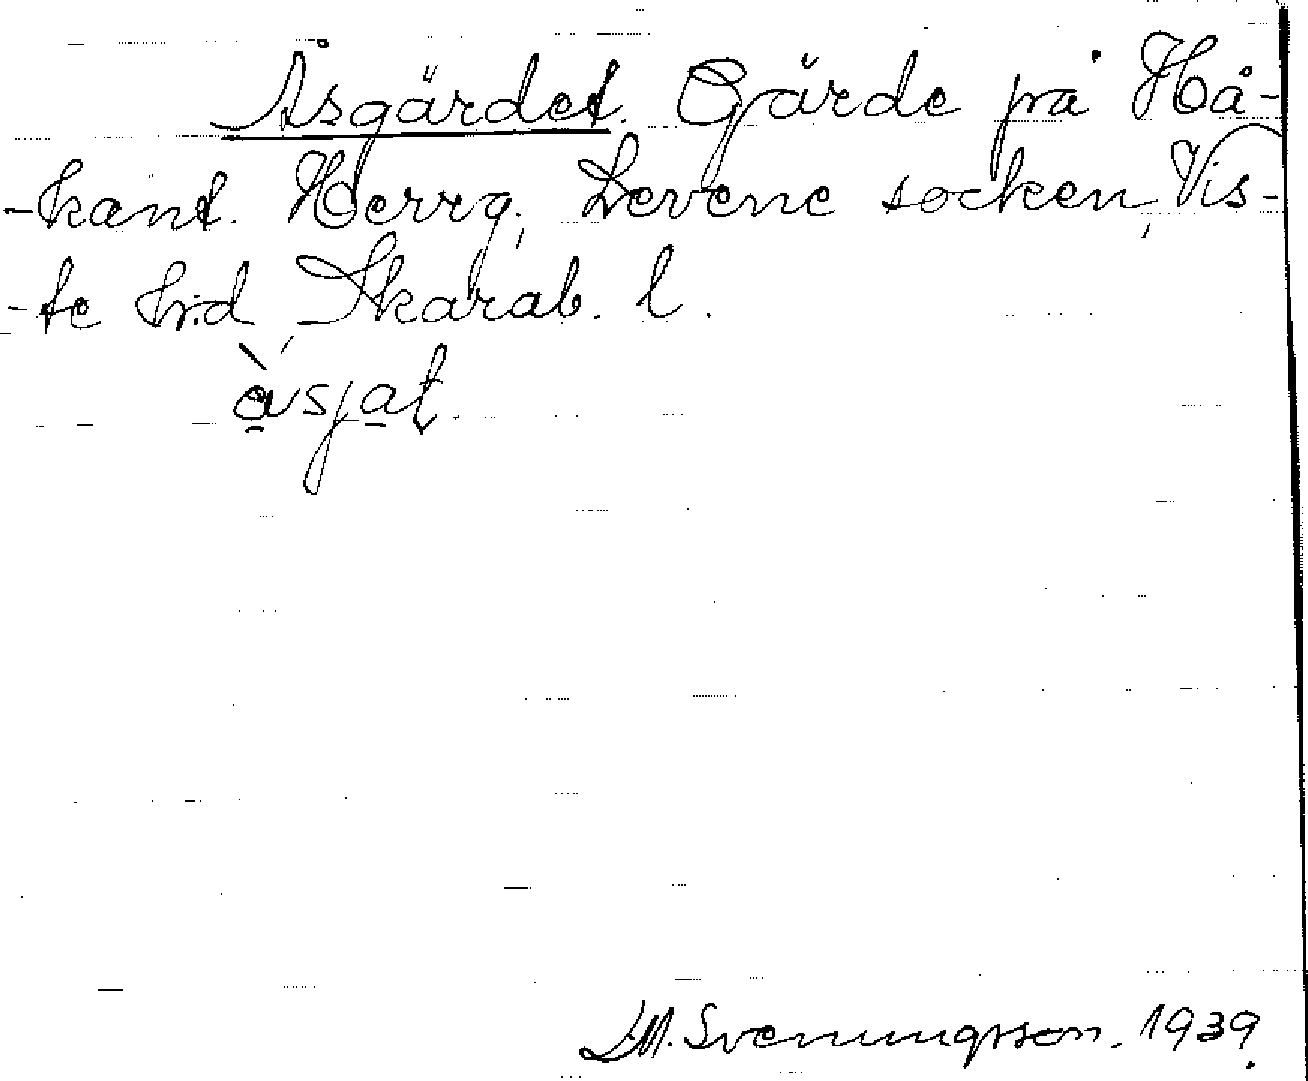 Åsgärdet. Gärde på Hå-
-kant. Herrg., Levene socken, Vis-
-te hrd, Skarab. l.
àsjat.
L.M. Svenungsson. 1939.